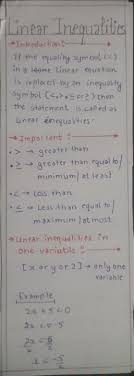 Linear Inequalities
Introduction:
If the equality symbol (=)
in a linear equation
is replaced by an inequality
symbol (<, > ≤ or ≥) then
the statement is called as
Linear inequalities.
Important:
• > → greater than
• ≥ → greater than equal to/
minimum/at least
• < → Less than
• ≤ → Less than equal to/
maximum/at most
Linear inequalities in
one variable:
[x or y or z] → only one
variable
Example
2x + 5 < 0
2x < -5